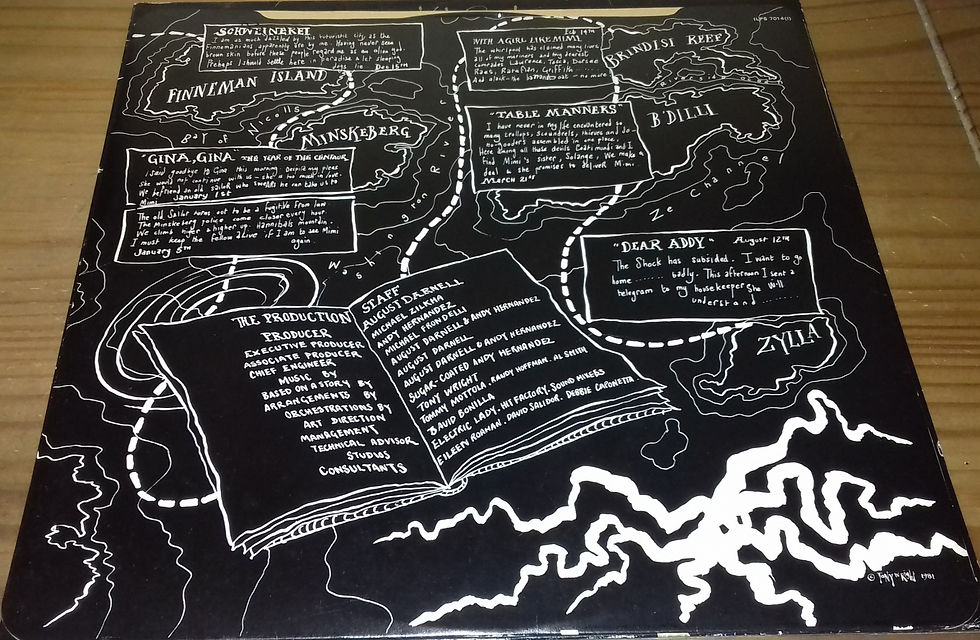 ILPS 7014(1)
SCHWEINEREI
I am as much dazzled by this futuristic city as the
Finnemanians apparently are by me. Having never seen
brown skin before these people regard me as an alien god.
Perhaps I should settle here in paradise & let sleeping
dogs lie. Dec 15TH
FINNEMAN ISLAND
Bay of Nicolls
MINSKEBERG
"GINA, GINA THE YEAR OF THE CENTAUR
I said goodbye to Gina this morning. Despite my pleas
she would not continue with us - she is too much in love.
We befriend an old sailor who swears he can take us to
Mimi. January 1st
The old sailor turns out to be a fugitive from law
The Minskeberg police come closer every hour.
We climb higher & higher up Hannibals mountain.
I must keep the fellow alive if I am to see Mimi
again.
January 5TH
Feb 14TH
WITH A GIRL LIKE MIMI
The whirlpool has claimed many lives
all of my men and my dearest
comrades Lawrence, Tosca, Dorsee
Raes, Rarafian, Griffith
And alack - the out - no more
BRINDISI REEF
"TABLE MANNERS"
I have never in my life encountered so
many trollops, scoundrels, thieves and do-
no-gooders assembled in one place.
Here among all those devils Coati mundi and I
find Mimi's sister, Solange. We make a
deal & she promises to deliver Mimi.
March 21st
B'DILLI
Washington River
Ze Channel
"DEAR ADDY" August 12TH
The Shock has subsided. I want to go
home ........ badly. This afternoon I sent a
telegram to my housekeeper She will
understand ..........
ZYLLA
THE PRODUCTION
PRODUCER
EXECUTIVE PRODUCER
ASSOCIATE PRODUCER
CHIEF ENGINEER
MUSIC BY
BASED ON A STORY BY
ARRANGEMENTS BY
ORCHESTRATIONS BY
ART DIRECTION
MANAGEMENT
TECHNICAL ADVISOR
STUDIOS
CONSULTANTS
STAFF
AUGUST DARNELL
MICHAEL ZILKHA
ANDY HERNANDEZ
MICHAEL FRONDELLI
AUGUST DARNELL & ANDY HERNANDEZ
AUGUST DARNELL
AUGUST DARNELL & ANDY HERNANDEZ
SUGAR-COATED ANDY HERNANDEZ
TONY WRIGHT
TOMMY MOTTOLA . RANDY HOFFMAN. AL SMITH
DAVID BONILLA
ELECTRIC LADY. HIT FACTORY. SOUND MIXERS
EILEEN ROAMAN. DAVID SALIDOR. DEBBIE CAPONETTA
© TONY WRIGHT 1981